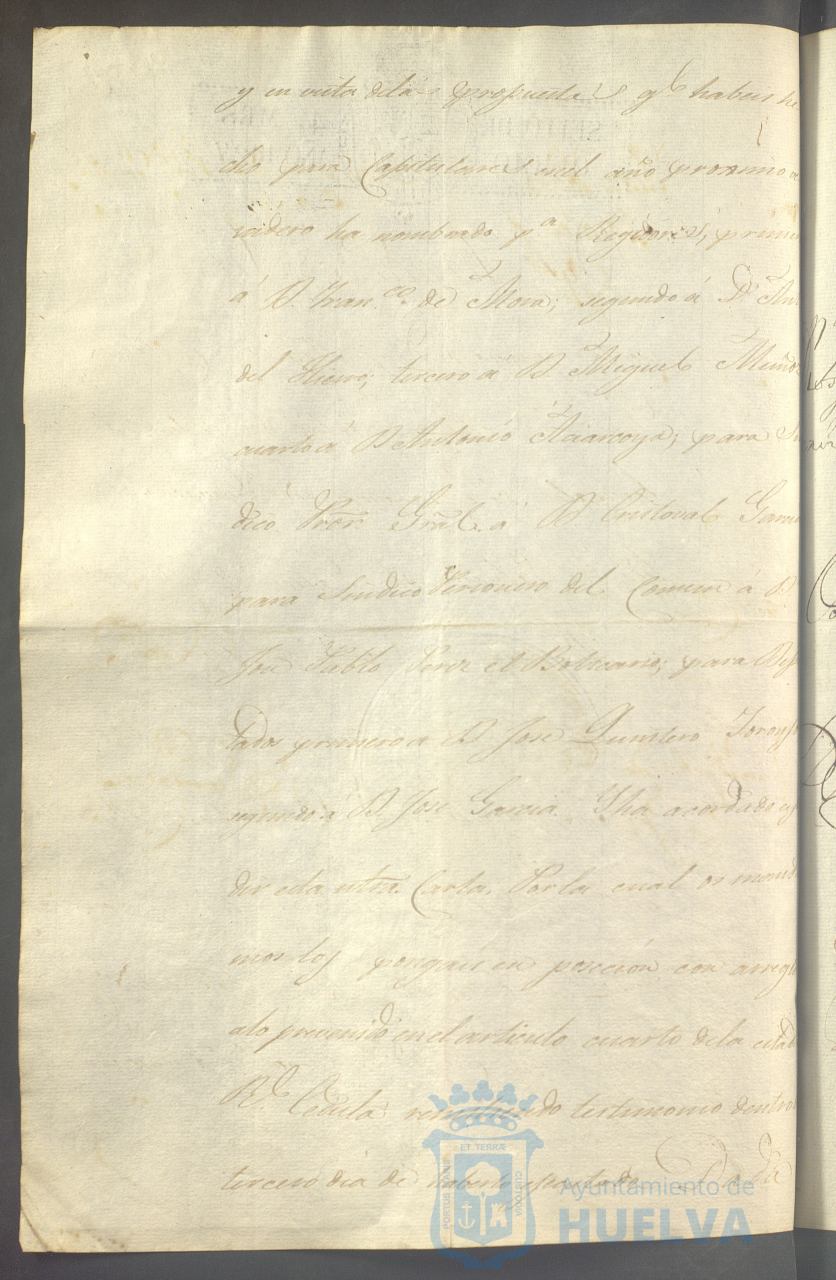 y en vista de la propuesta qe habeis he
cho para Capitulares en el año proximo
vadero ha nombrado pa Regidores, prime
á D. Franco. de Mora; segundo á Dn. An
del Hierro; tercero á D. Miguel Muño
cuarto á D. Antonio para Sin
dico Pror. Gral. á D. Cristoval Garci
para Sindico Personero del Comun á D.
José Pablo Perez el Boticario; para Dip
tados primero á D. José Quintero
segundo á D. José Garcia. Y ha acordado esp
dir esta ntra. Carta. Por la cual os manda
mos los pongais en posecion con arreg
a lo prevenido en el articulo cuarto de la citad
Rl. Cedula remitiendo testimonio dentro
tercero dia de haberlo ejecutado. Dada
ET TERRÆ
PORTUS MARIS
CUSTODIA
Ayuntamiento de
HUELVA